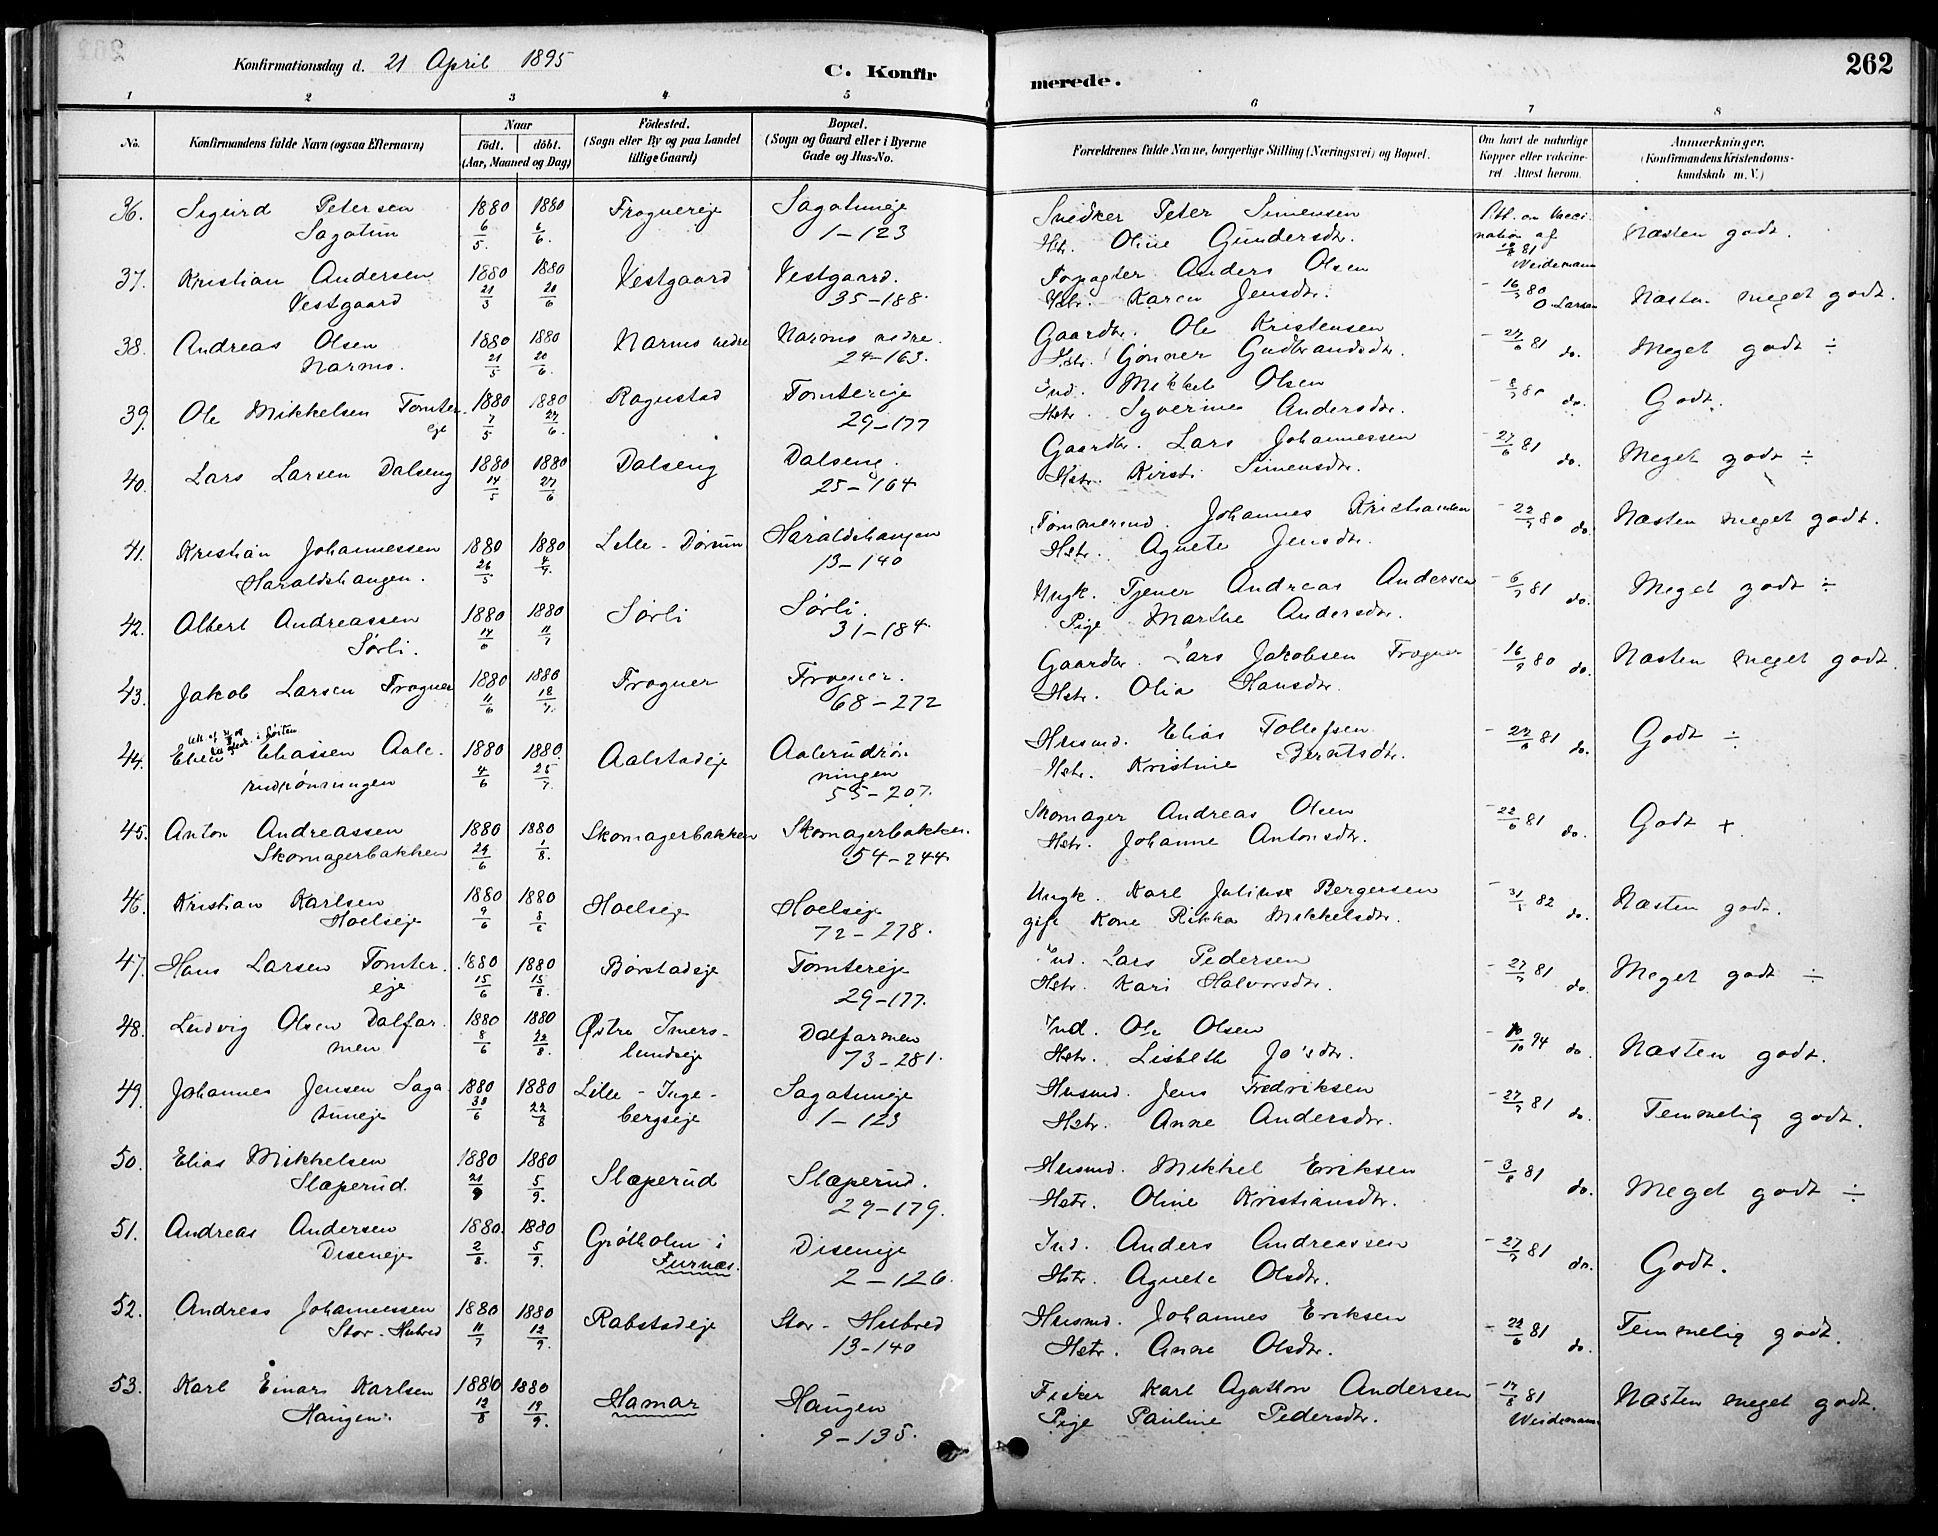 262
Konfirmationsdag d. 21 April 1895
C. Konfirmerede.
1 2 3 4 5 6 7 8
No. Konfirmandens fulde Navn (ogsaa Efternavn) Naar født. døbt. (Aar, Maaned og Dag) Fødested. (Sogn eller By og paa Landet tillige Gaard) Bopæl. (Sogn og Gaard eller i Byerne Gade og Hus-No. Forældrenes fulde Navne, borgerlige Stilling (Næringsvei) og Bopæl. Om havt de naturlige Kopper eller vakcineret. Attest herom. Anmærkninger. (Konfirmandens Kristendomskundskab m. V.)
36. Sigurd Petersen 1880 1880 Frognereje Sagatuneje Snedker Peter Simensen
Sagatun 6/5. 6/6. 1-123 Hstr. Oline Gundersdtr. 81 Weidemann Næsten godt.
37. Kristian Andersen 1880 1880 Vestgaard Vestgaard. Forpagter Anders Olsen
Vestgaard 35-188. Hstr. Karen Jensdtr. 80 O. Larsen Næsten meget godt.
38. Andreas Olsen 1880 1880 Narmo nedre Narmo nedre. Gaardbr. Ole Kristensen
Narmo. 21/5 20/6. 24-163. Hstr. Gønner Gudbrandsdtr. 81 do. Meget godt ÷
39. Ole Mikkelsen Tomter- 1880 1880 Rognstad Tomtereje Ind. Mikkel Olsen
eje 7/5 27/6. 29-177 Hstr. Syverine Andersdtr. do. Godt.
40. Lars Larsen Dalseng 1880 1880 Dalseng Dalseng. Gaardbr. Lars Johannessen
14/5 27/6 25-164 Hstr. Kirsti Simensdtr. 27/6 81 do. Meget godt ÷
41. Kristian Johannessen 1880 1880 Lille-Dørum Haraldshaugen Tømmermd. Johannes Kristiansen
Haraldshaugen. 26/5 4/7. 13-140 Hstr. Agnete Jensdtr. 80 do. Næsten meget godt.
42. Albert Andreassen 1880 1880 Sørli Sørli. Ungk. Tjener Andreas Andersen
Sørli. 11/7 31-184. Pige Marthe Andersdtr. 81 do. Meget godt ÷
43. Jakob Larsen Frogner 1880 1880 Frogner Frogner. Gaardbr. Lars Jakobsen Frogner
11/6 18/7. 68-272 Hstr. Olia Hansdtr. 80 do. Næsten meget godt.
44. Eliassen Aale- 1880 1880 Aalstadeje Aalerudrøn- Husmd. Elias Tollefsen
rudrønningen 4/6 25/7. ningen Hstr. Kristine Berntsdtr. 81 do. Godt ÷
55-207.
45. Anton Andreassen 1880 1880 Skomagerbakken Skomagerbakken. Skomager Andreas Olsen
Skomagerbakken 29/6 1/8. 54-244 Hstr. Johanne Antonsdtr. 22/6 81 do. Godt +.
46. Kristian Karlsen 1880 1880 Hoelseje Hoelseje Ungk. Karl Julius Bergersen
Hoelseje 9/6 72-278. gift Kone Rikka Mikkelsdtr. 82 do. Næsten godt.
47. Hans Larsen Tomter- 1880 1880 Børstadeje Tomtereje Ind. Lars Pedersen
eje 15/6 15/8. 29-177. Hstr. Kari Halvorsdtr. 81 do. Meget godt ÷
48. Ludvig Olsen Dalfar- 1880 1880 Østre Imers- Dalfarmen Ind. Ole Olsen
men 8/6 22/8. lundseje 73-281. Hstr. Lisbeth Jo'sdtr. 94 do. Næsten godt.
49. Johannes Jensen Saga- 1880 1880 Lille-Inge- Sagatuneje Husmd. Jens Fredriksen
tuneje 30/6 22/8 bergseje 1-123 Hstr. Anne Andersdtr. 81 do. Temmelig godt.
50. Elias Mikkelsen 1880 1880 Slæperud Slæperud. Husmd. Mikkel Eriksen
Slæperud 5/9. 29-179. Hstr. Oline Kristiansdtr. 3/8 81 do. Meget godt ÷
51. Andreas Andersen 1880 1880 Grøtholm i Diseneje Ind. Anders Andreassen
Diseneje 2/8. 5/9. Furnes. 2-126. Hstr. Agnete Olsdtr. 81 do. Godt.
52. Andreas Johannessen 1880 1880 Rabstadeje Stor-Hubred Husmd. Johannes Eriksen
Stor-Hubred 11/7 12/9. 13-140 Hstr. Anne Olsdtr. 81 do. Temmelig godt.
53. Karl Einar Karlsen 1880 1880 Hamar Haugen Fisker Karl Agathon Andersen
Haugen. 12/8 19/9. 9-135. Pige Pauline Pedersdtr. 81 Weidemann Næsten meget godt.